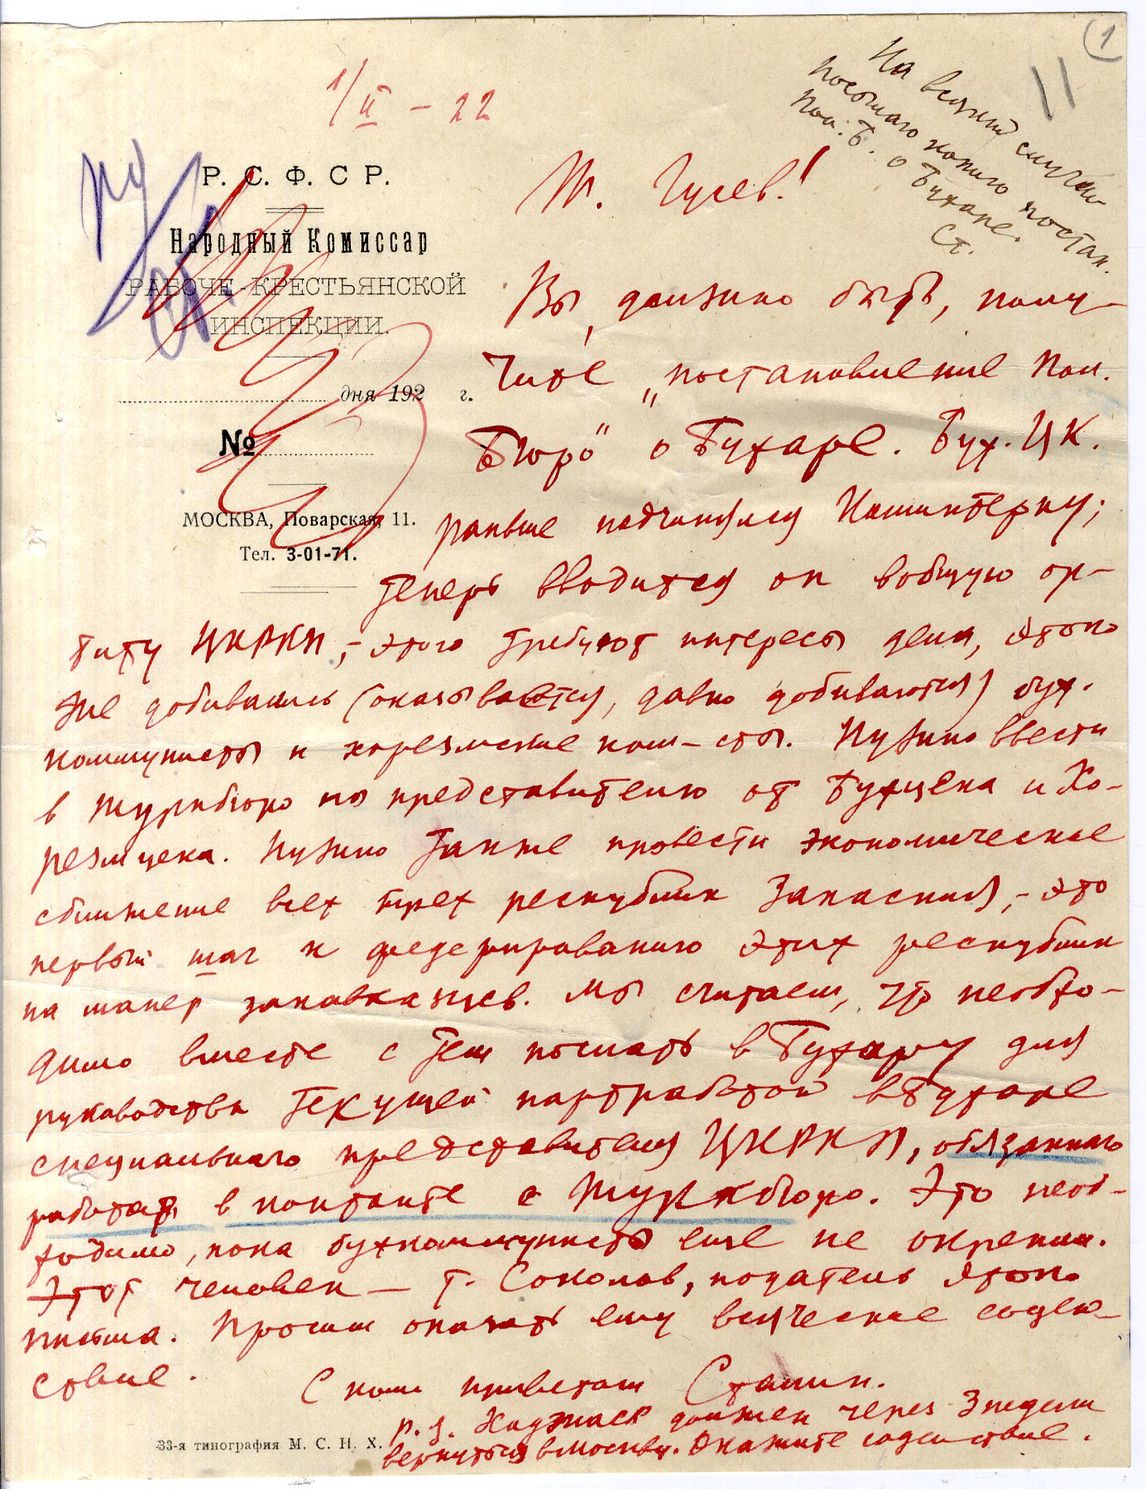 1
11
На всякий случай
посылаю копию постан.
Пол. Б. о Бухаре.
Ст.
1/II – 22
Р. С. Ф. С Р.
Народный Комиссар
РАБОЧЕ-КРЕСТЬЯНСКОЙ
ИНСПЕКЦИИ.
дня 192 г.
№
МОСКВА, Поварская, 11.
Тел. 3-01-71.
Т. Гусев!
Вы, должно быть, полу-
чите „постановление Пол.
Бюро" о Бухаре. Бух. ЦК.
раньше подчинялся Коминтерну;
теперь вводится он в общую ор-
биту ЦКРКП, – этого требуют интересы дела, этого
же добивались (оказывается, давно добиваются) бух.
коммунисты и хорезмские ком-сты. Нужно ввести
в Туркбюро по представителю от Бухцека и Хо-
резмцека. Нужно также провести экономическое
сближение всех трех республик Закаспия, – это
первый шаг к федерированию этих республик
на манер закавказцев. Мы считаем, что необхо-
димо вместе с тем послать в Бухару для
руководства текущей партработой в Бухаре
специального представителя ЦКРКП, обязанного
работать в контакте с Туркбюро. Это необ-
ходимо, пока бухкоммунисты еще не окрепли.
Этот человек – т. Соколов, податель этого
письма. Просим оказать ему всяческое содей-
ствие.
С ком приветом Сталин.
P.S. Ходжаев должен через 3 недели
вернуться в Москву. Окажите содействие.
33-я типография М. С. Н. Х.